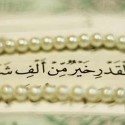 لقدر خير من ألف ش